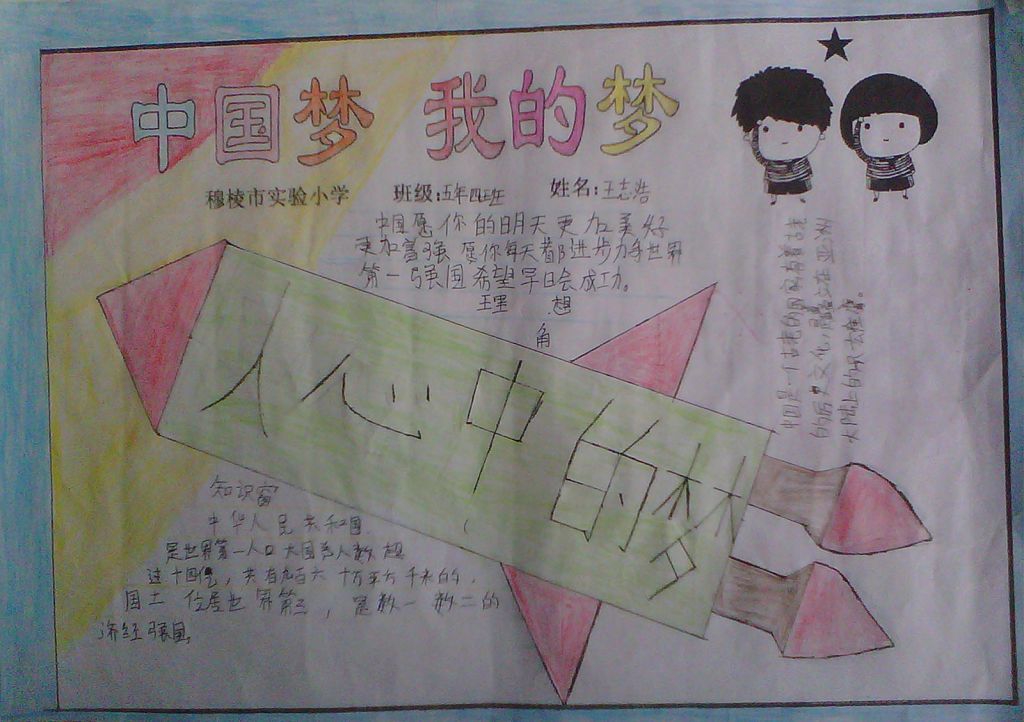 中国梦 我的梦
穆棱市实验小学 班级:五年四班 姓名:王志浩
中国愿你的明天更加美好
更加富强 愿你每天都进步力争世界
第一强国希望早日会成功。
理想
角
人心中的梦
中国是一个古老的国家有着
的历史文化,
大陆上的
知识窗
中华人民共和国
是世界第一人口大国总人数超
过十四亿,共有九百六十万平方千米的
国土 位居世界第三,是数一数二的
济经强国。